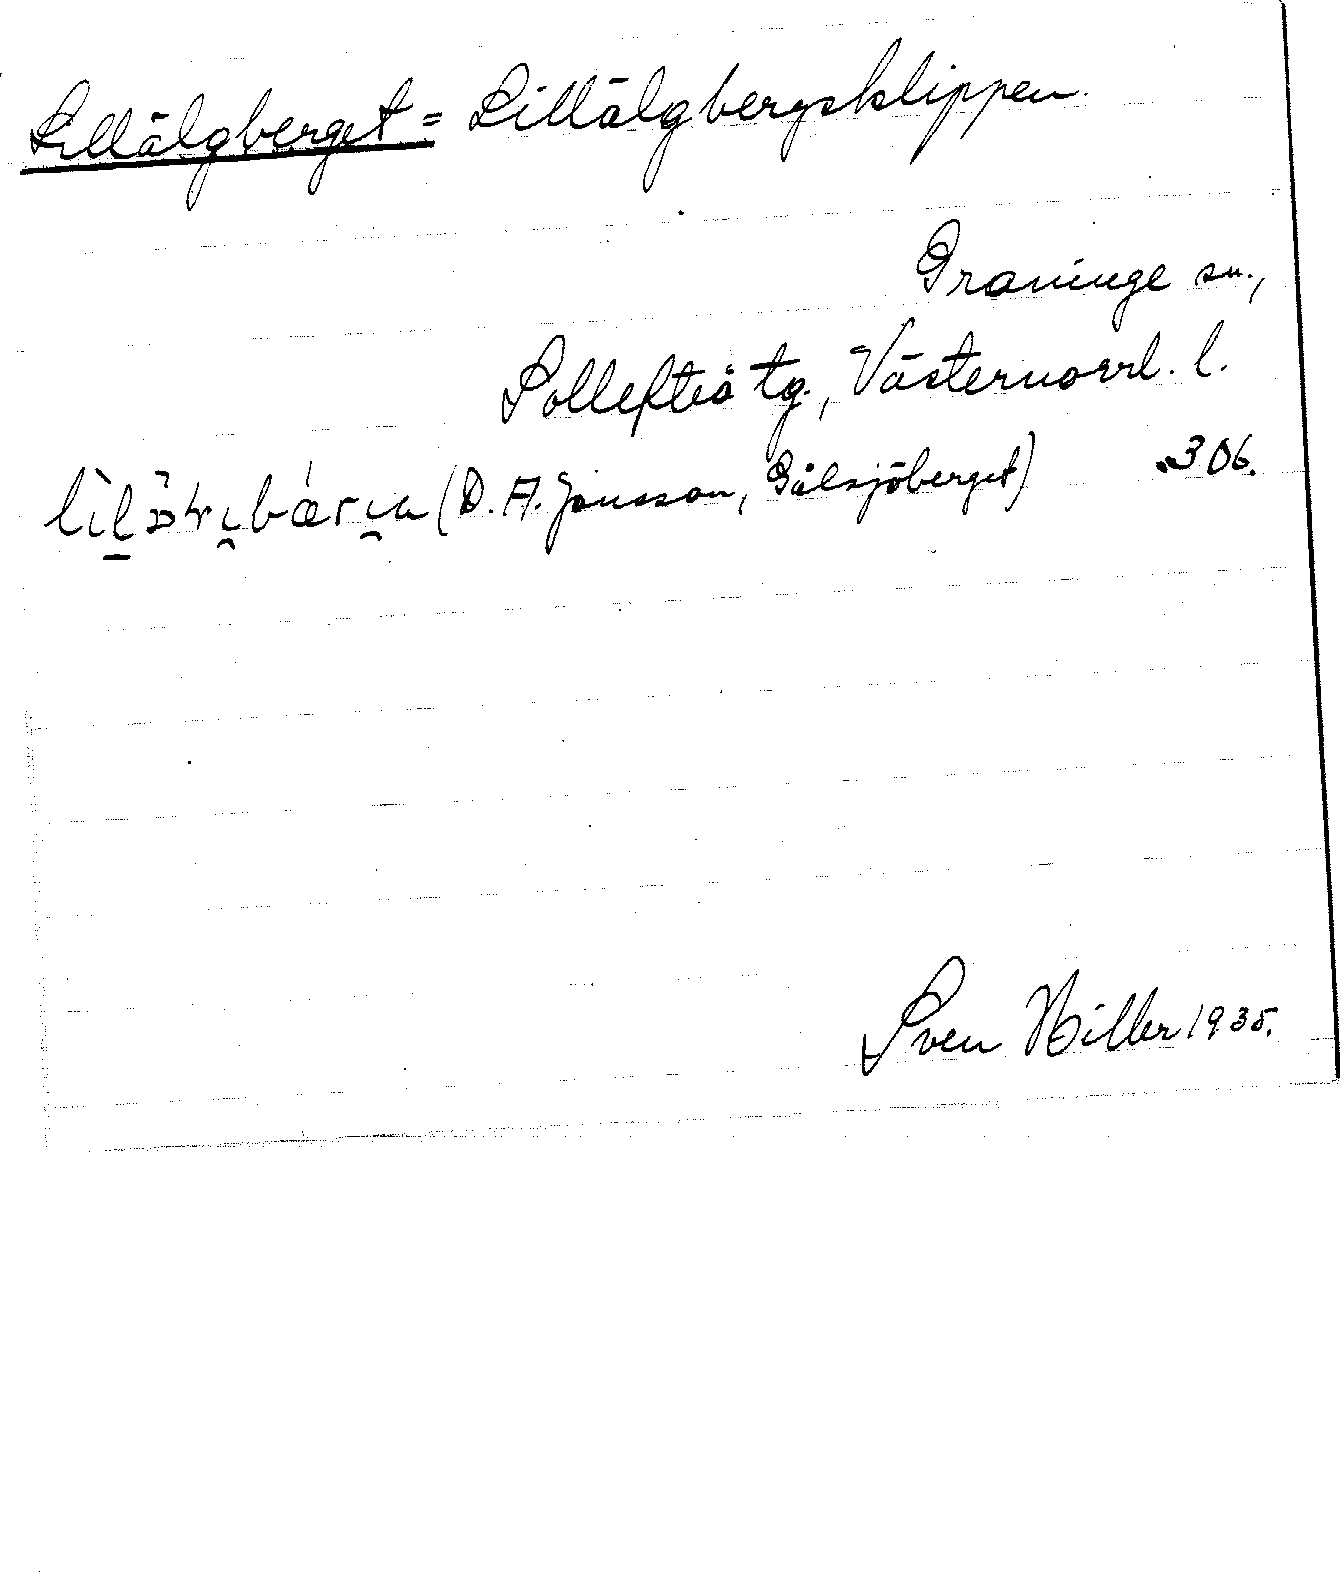 Lillälgberget = Lillälgbergsklippen.
Graninge sn.,
Sollefteå tg., Västernorrl. l.
(D. A. Jonsson, Gålsjöberget) 306.
Sven Hiller 1935.